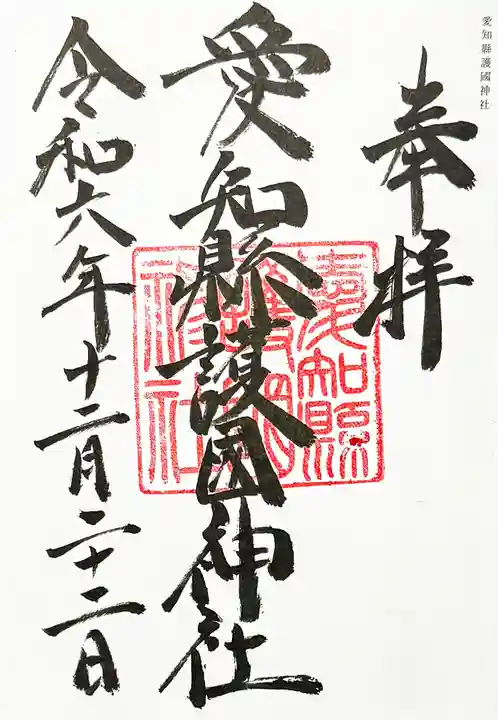 愛知縣護國神社
奉拝
愛知縣護国神社
愛知縣
護國
神社
令和六年十二月二十二日